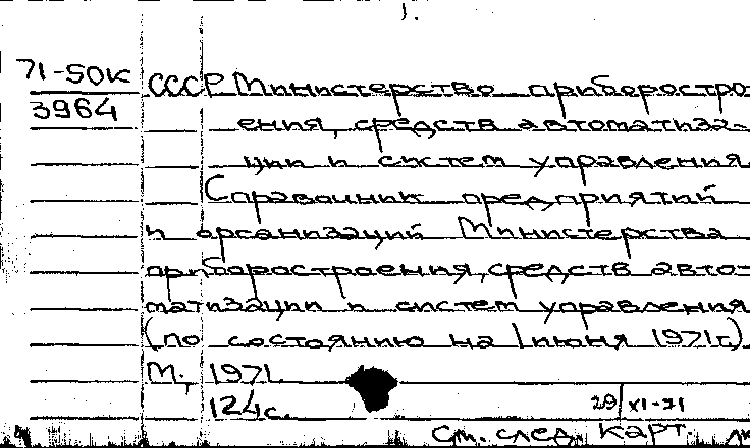 1.
71-50к СССР Министерство приборостро-
3964 ения, средств автоматиза-
ции и систем управления
Справочник предприятий
и организаций Министерства
приборостроения, средств авто-
матизации и систем управления
(по состоянию на 1 июня 1971г.)
М., 1971.
124с.
29/XI-71
См. след. карт.